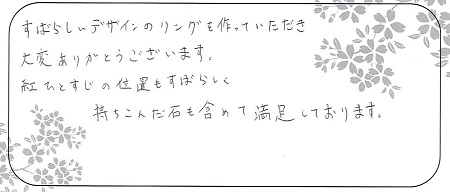 すばらしいデザインのリングを作っていただき
大変ありがとうございます。
紅ひとすじの位置もすばらしく
持ちこんだ石も含めて満足しております。